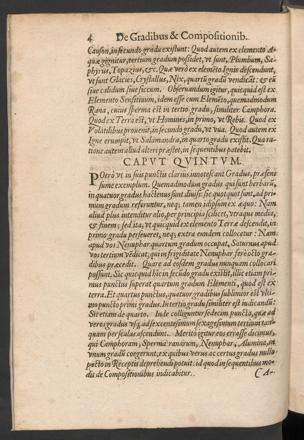 4 De Gradibus & Compositionib.
Causon, in secundo gradu existunt: Quod autem ex elemento A-
quæ gignitur, tertium gradum possidet, vt sunt, Plumbum, Sa-
phyrus, Topazius, &c. Quæ verò ex elemẽto Ignis descendunt,
vt sunt Glacies, Crystallus, Nix, quartũ gradũ vendicãt: & eũ
siue calidum siue siccum. Obseruandum igitur, quicquid est ex
Elemento Sensitiuum, idem esse cum Elemẽto, quemadmodum
Rana, cuius sperma est in tertio gradu, similiter Camphora.
Quod ex Terra est, vt Homines, in primo, vt Rebis. Quod ex
Volatilibus prouenit, in secundo gradu, vt vua. Quod autem ex
Igne erumpit, vt Salamandra, in quarto gradu existit. Qua ra-
tione autem aliud alteri præstet, in sequentibus patebit.
CAPVT QVINTVM.
POterò vt in suis punctis clarius innotescant Gradus, præsens
sume exemplum. Quemadmodum gradus qui sunt herbarũ,
in quatuor gradus hactenus sunt diuisi: sic quotquot sunt, ad pri-
mum gradum referuntur, neq; tamen id ipsum ex æquo: Nam
aliud plus intenditur alio, per principia scilicet, vtraque media,
& finem: sed ita, vt quicquid ex elemento Terra descendit, in
primo gradu perseueret, neq; extra eundem collocetur: Nam
apud vos Nenuphar quartum gradum occupat, Saturnus apud
vos tertium vendicat, qui in frigiditate Nenuphar ferò octo gra-
dibus præcedit. Quare ad eosdem gradus nunquam collocari
possunt. Sic quicquid hîc in secũdo gradu existit, illic etiam pri-
mus punctus superat quartum gradum Elementi, quod est ex
terra. Et quartus punctus, quatuor gradibus sublimior est vlti-
mo puncto primi gradus. In tertio gradu similiter est iudicandũ:
Sic etiam de quarto. Inde colliguntur sedecim puncta, quæ ad
veros gradus vsq; ad sexcentesimum sexagesimum tertium tan-
quam per scalas ascendunt. Meritò igitur eos errasse dicimus,
qui Camphoram, Sperma ranarum, Nenuphar, Alumina, in
vnum gradũ coegerunt, ex quibus verus ac certus gradus nullo
pacto in Receptis deprehendi potuit: id quod in sequentibus mo-
dis de Compositionibus indicabitur. CA-